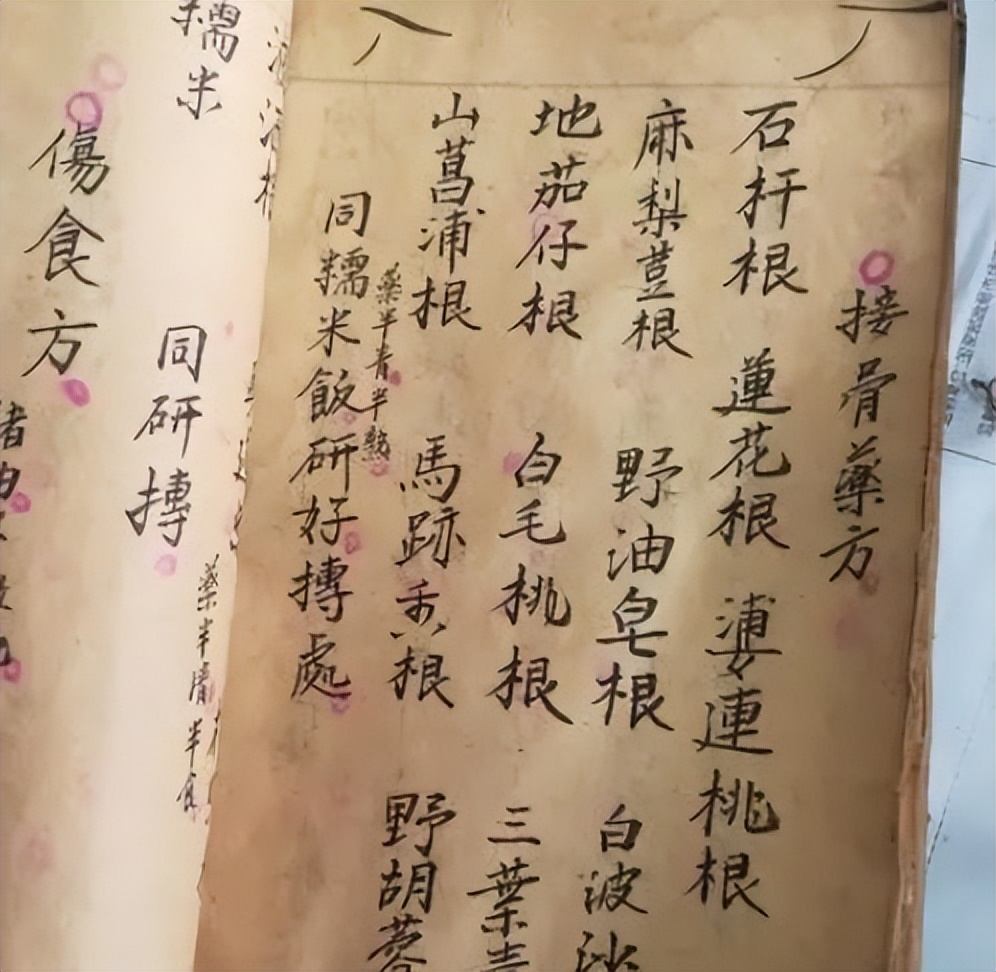 接骨藥方
石杆根 蓮花根 婆連桃根
麻梨荳根 野油皂根 白波
地茄仔根 白毛桃根 三葉青
山菖蒲根 馬跡香根 野胡蓉
藥半青半熟
同糯米飯研好摶處
糯米 同研摶
藥半
傷食方